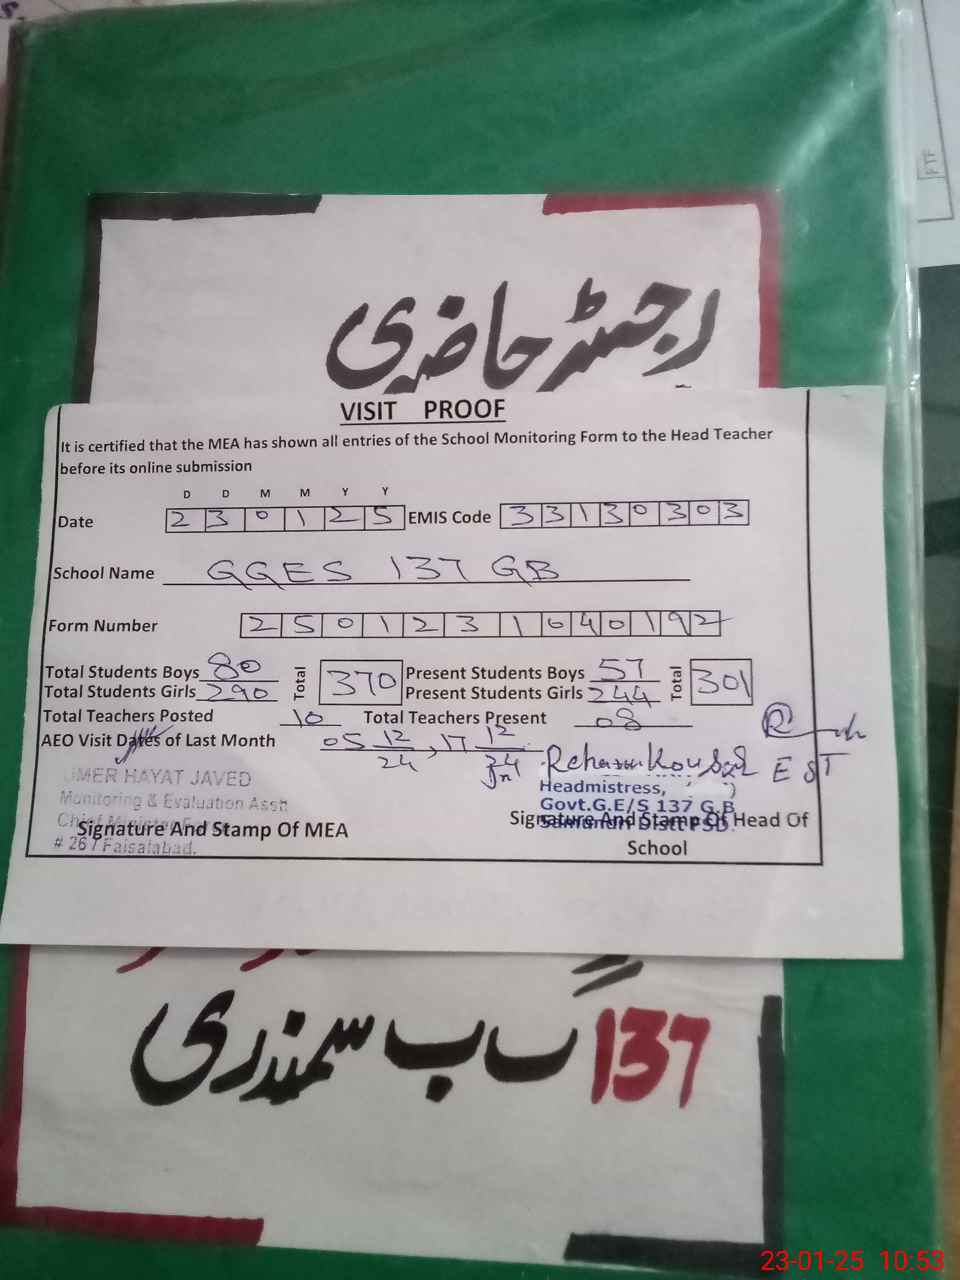 S.
FTF
رجسٹر حاضری
VISIT PROOF
It is certified that the MEA has shown all entries of the School Monitoring Form to the Head Teacher
before its online submission
D D M M Y Y
Date 2 3 0 1 2 5 EMIS Code 3 3 1 3 0 3 0 3
School Name GGES 137 GB
Form Number 2 5 0 1 2 3 1 0 4 0 1 9 2
Total Students Boys 80 Total 370 Present Students Boys 57 Total 301
Total Students Girls 290 Present Students Girls 244
Total Teachers Posted 10 Total Teachers Present 08
AEO Visit Dates of Last Month 05 12/24, 17 12/24
EST
UMER HAYAT JAVED
Monitoring & Evaluation Asstt
Chief Minister Force
# 267 Faisalabad.
Signature And Stamp Of MEA
Headmistress,
Govt.G.E/S 137 G.B
Samundri Distt FSD.
Signature And Stamp Of Head Of
School
137 گ ب سمندری
23-01-25 10:53